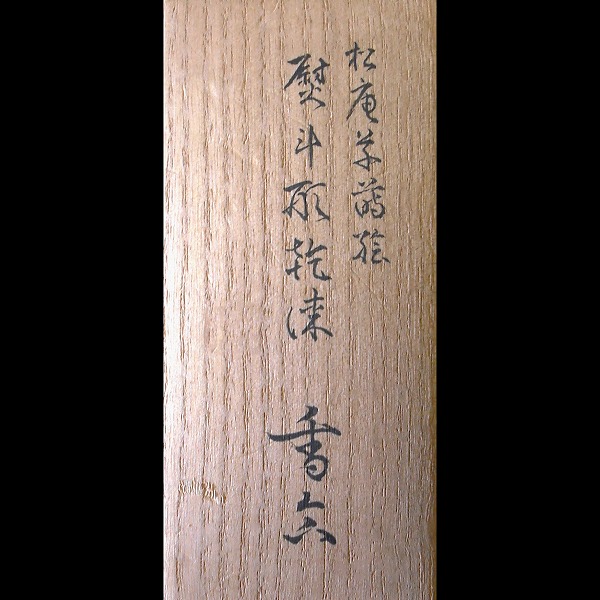 松庵草蒔絵
熨斗形乾漆 香合